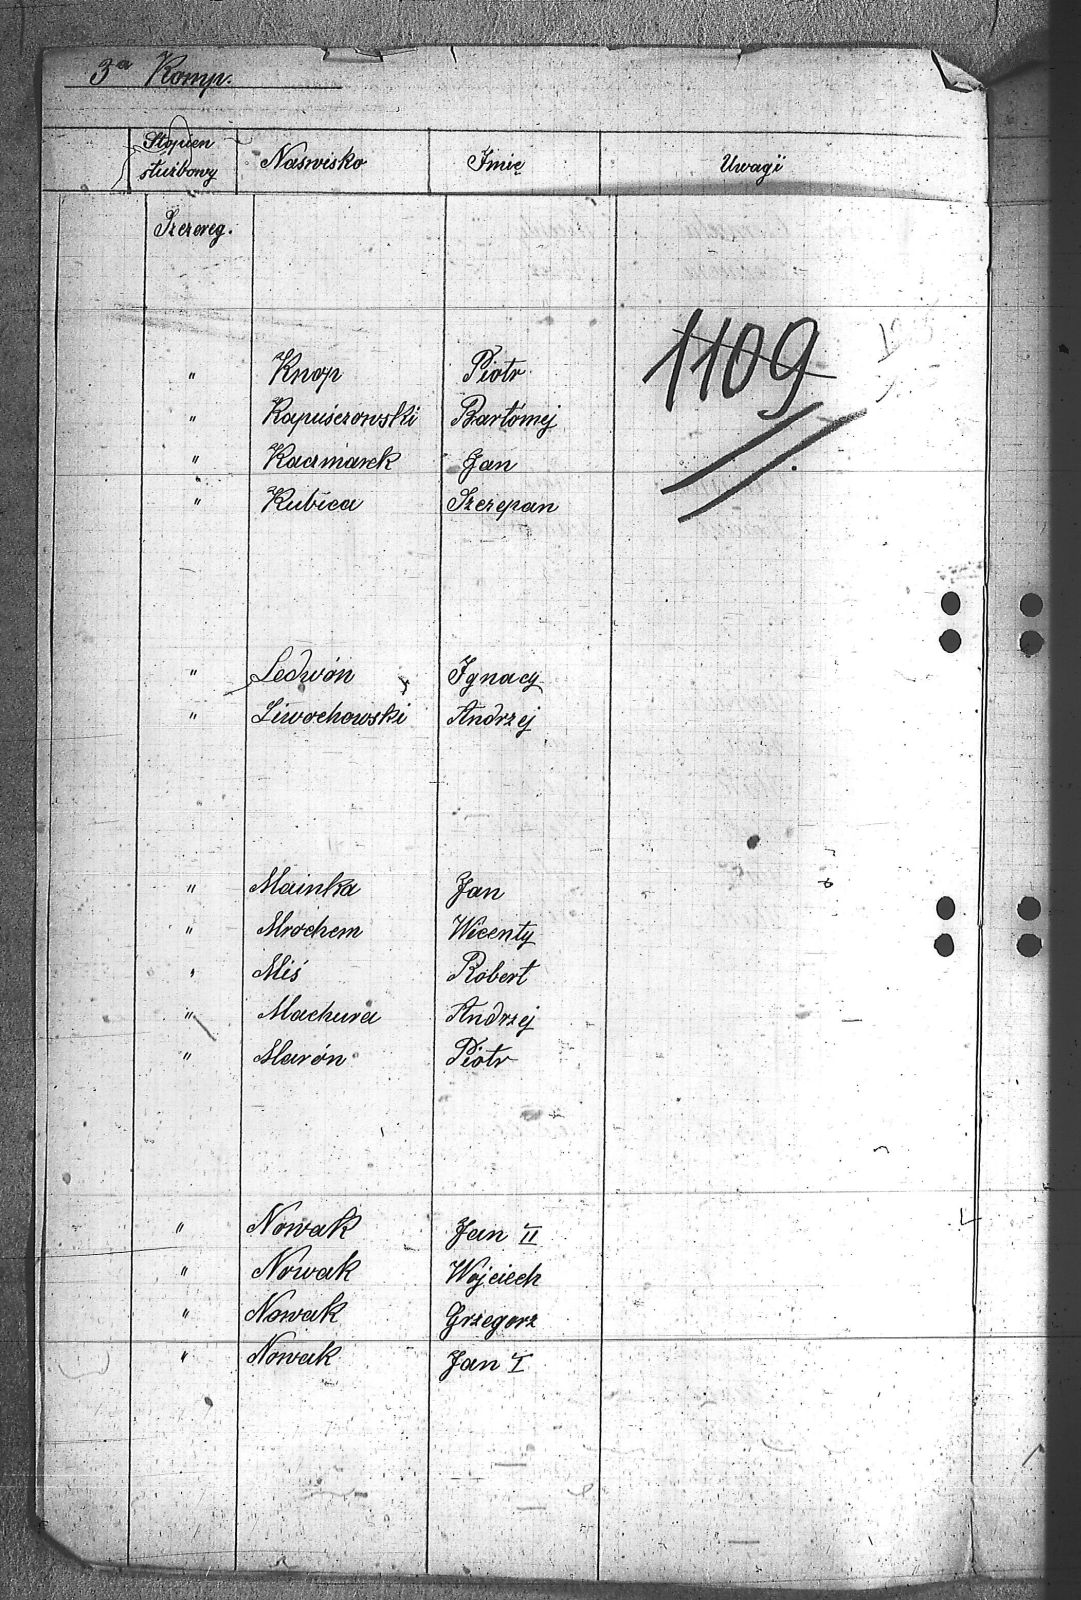 3a Komp.
Stopień służbowy Naswisko Imię Uwagi
Szereg.
1109
" Knop Piotr
" Kapuśczowski Bartómej
" Kaczmarek Jan
" Kubica Szczepan
" Ledwón Ignacy
" Liwochowski Andrzej
" Mainka Jan
" Mrochem Wicenty
" Miś Robert
" Machura Andrzej
" Maroń Piotr
" Nowak Jan II
" Nowak Wojciech
" Nowak Grzegorz
" Nowak Jan I